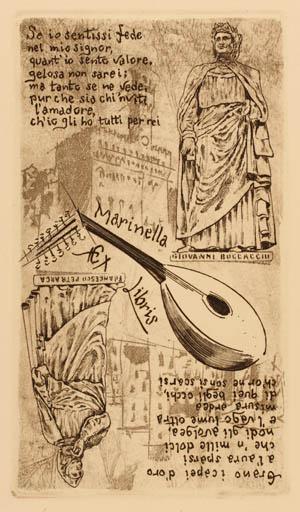 Se io sentissi fede
nel mio signor,
quant'io sento valore,
gelosa non sarei;
ma tanto se ne vede,
pur che sia chi 'nviti
l'amadore,
ch'io gli ho tutti per rei
GIOVANNI BOCCACCIO
Marinella
Ex
libris
FRANCESCO PETRARCA
Erano i capei d'oro
a l'aura sparsi
che 'n mille dolci
nodi gli avolgea,
e 'l vago lume oltra
misura ardea
di quei begli occhi,
ch'or ne son sì scarsi